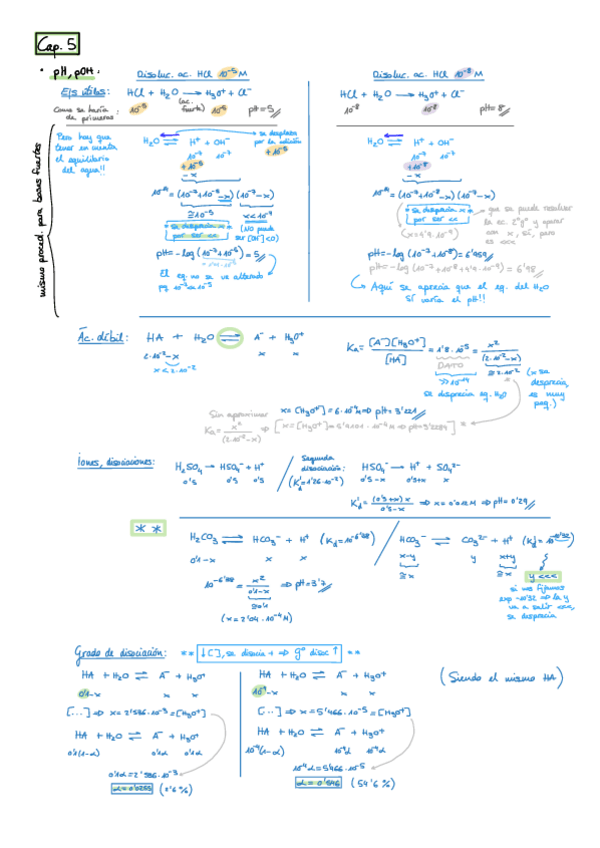 Cap. 5
• pH, pOH:
Disoluc. ac. HCl 10⁻⁵ M
Disoluc. ac. HCl 10⁻⁸ M
Ejs útiles:
HCl + H₂O → H₃O⁺ + Cl⁻
HCl + H₂O → H₃O⁺ + Cl⁻
Como se haría de primeras:
10⁻⁵ (ac. fuerte) 10⁻⁵ pH = 5
10⁻⁸ 10⁻⁸ pH = 8
mismo proced. para bases fuertes
Pero hay que
tener en cuenta
el equilibrio
del agua!!
H₂O ⇌ H⁺ + OH⁻
se desplaza
por la adición
+ 10⁻⁵
10⁻⁷ 10⁻⁷
+10⁻⁵
-x
10⁻¹⁴ = (10⁻⁷+10⁻⁵-x)(10⁻⁷-x)
≅10⁻⁵
se desprecia x
por ser <<
(No puede
ser [OH⁻]<0)
pH = -log(10⁻⁷+10⁻⁵) = 5
El eq. no se ve alterado
pq 10⁻⁷<<10⁻⁵
H₂O ⇌ H⁺ + OH⁻
10⁻⁷ 10⁻⁷
+10⁻⁸
-x
10⁻¹⁴ = (10⁻⁷+10⁻⁸-x)(10⁻⁷-x)
se desprecia x
por ser <<
que se puede resolver
la ec. 2º gº y operar
con x, sí, pero
es <<<
(x=4'9·10⁻⁹)
pH = -log(10⁻⁷+10⁻⁸) = 6'959
= 6'98
Aquí se aprecia que el eq. del H₂O
sí varía el pH!!
Ác. débil:
HA + H₂O ⇌ A⁻ + H₃O⁺
2·10⁻²-x x x
x<2·10⁻²
Ka = [A⁻][H₃O⁺]/[HA] = 1'8·10⁻⁵ = x²/(2·10⁻²-x)
DATO
>>10⁻¹⁴
se desprecia eq. H₂O
≅2·10⁻²
(x se
desprecia,
es muy
peq.)
x=[H₃O⁺]=6·10⁻⁴ M ⇒ pH=3'221
Sin aproximar
Ka = x²/(2·10⁻²-x)
Iones, disociaciones:
H₂SO₄ → HSO₄⁻ + H⁺
0'5 0'5 0'5
Segunda
disociación:
(K'd=1'26·10⁻²)
HSO₄⁻ → H⁺ + SO₄²⁻
0'5-x 0'5+x x
K'd = (0'5+x)x/(0'5-x) ⇒ x=0'012 M ⇒ pH=0'29
* *
H₂CO₃ ⇌ HCO₃⁻ + H⁺
0'1-x x x
≅0'1
⇒ pH=3'7
(x=2'04·10⁻⁴ M)
HCO₃⁻ ⇌ CO₃²⁻ + H⁺ (K'd=10⁻¹⁰'³²)
x-y y x+y
≅x ≅x
y <<<
si nos fijamos
exp -10'32 ⇒ la y
va a salir <<<,
se desprecia
Grado de disociación:
** ↓[ ], se disocia + ⇒ gº disoc ↑ **
HA + H₂O ⇌ A⁻ + H₃O⁺
0'1-x x x
[...] ⇒ x=2'596·10⁻³=[H₃O⁺]
HA + H₂O ⇌ A⁻ + H₃O⁺
0'1(1-α) 0'1α 0'1α
0'1α=2'596·10⁻³
(2'6%)
HA + H₂O ⇌ A⁻ + H₃O⁺
10⁻⁴-x x x
[...] ⇒ x=5'466·10⁻⁵=[H₃O⁺]
HA + H₂O ⇌ A⁻ + H₃O⁺
10⁻⁴(1-α) 10⁻⁴α 10⁻⁴α
10⁻⁴α=5'466·10⁻⁵
α=0'546 (54'6%)
(Siendo el mismo HA)